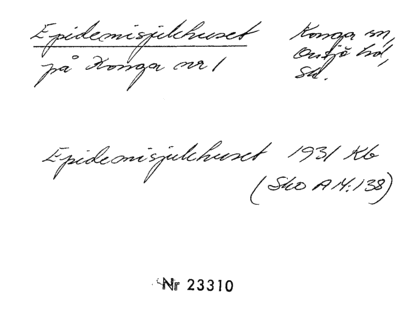 Epidemisjukhuset
på Konga nr 1
Konga sn,
Onsjö hd,
Sk.
Epidemisjukhuset 1931 Kb
(Sko A M:138)
Nr 23310